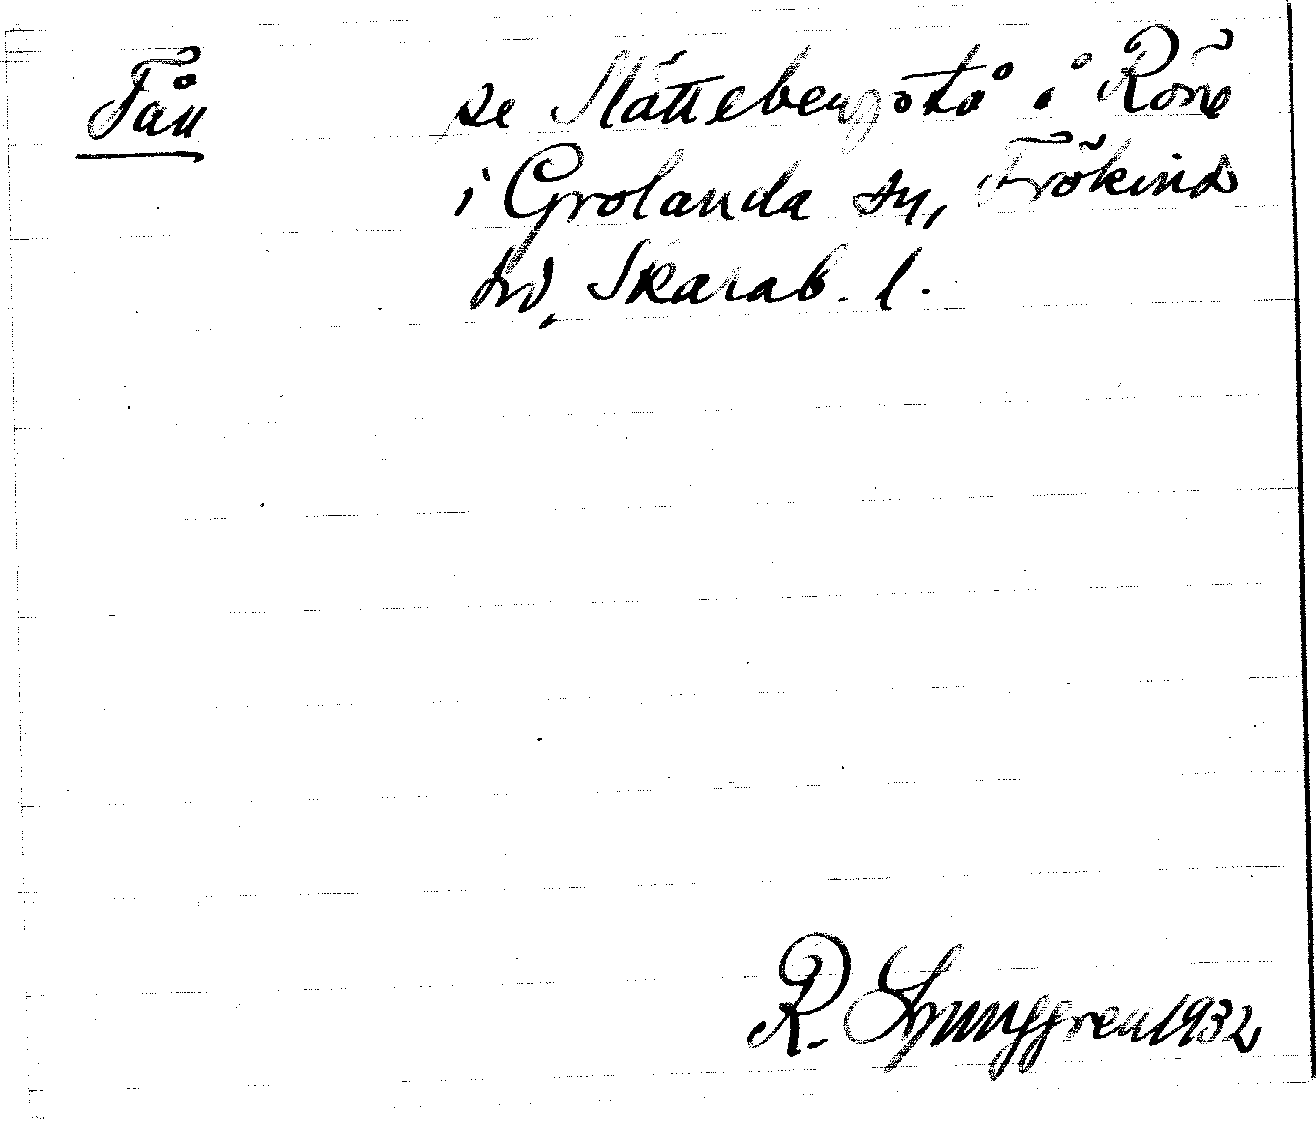 Fån se Slättebergstå i Röne
i Grolanda sn, Frökinds
hd, Skarab. l.
R. Ljunggren 1932